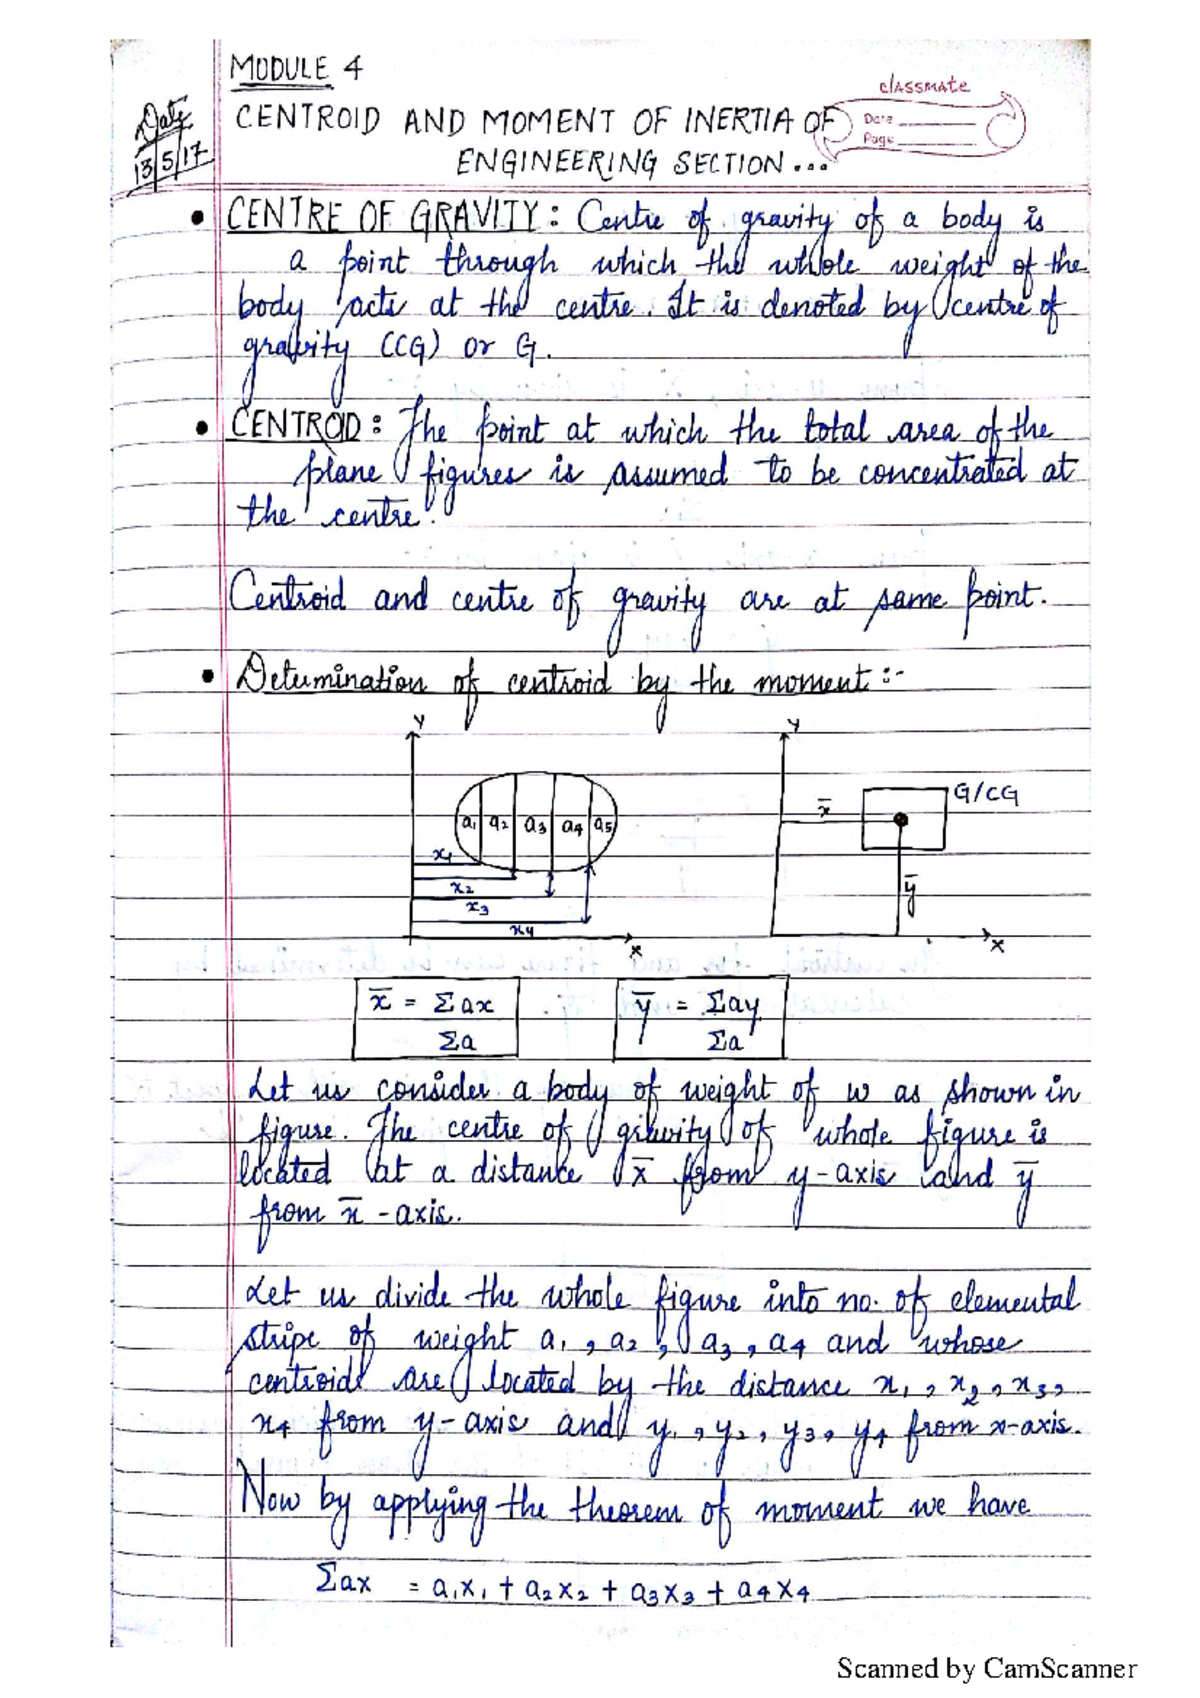 MODULE 4
classmate
Date
Page
Date
13/5/17
CENTROID AND MOMENT OF INERTIA OF
ENGINEERING SECTION...
• CENTRE OF GRAVITY: Centre of gravity of a body is
a point through which the whole weight of the
body acts at the centre. It is denoted by centre of
gravity (CG) or G.
• CENTROID: The point at which the total area of the
plane figures is assumed to be concentrated at
the centre.
Centroid and centre of gravity are at same point.
• Determination of centroid by the moment :-
Y
a1 a2 a3 a4 a5
x1
x2
x3
x4
X
Y
G/CG
x̄
ȳ
X
x̄ = Σax
Σa
ȳ = Σay
Σa
Let us consider a body of weight of w as shown in
figure. The centre of gravity of whole figure is
located at a distance x̄ from y-axis and ȳ
from x̄-axis.
Let us divide the whole figure into no. of elemental
stripe of weight a1, a2, a3, a4 and whose
centroids are located by the distance x1, x2, x3,
x4 from y-axis and y1, y2, y3, y4 from x-axis.
Now by applying the theorem of moment we have
Σax = a1x1 + a2x2 + a3x3 + a4x4
Scanned by CamScanner